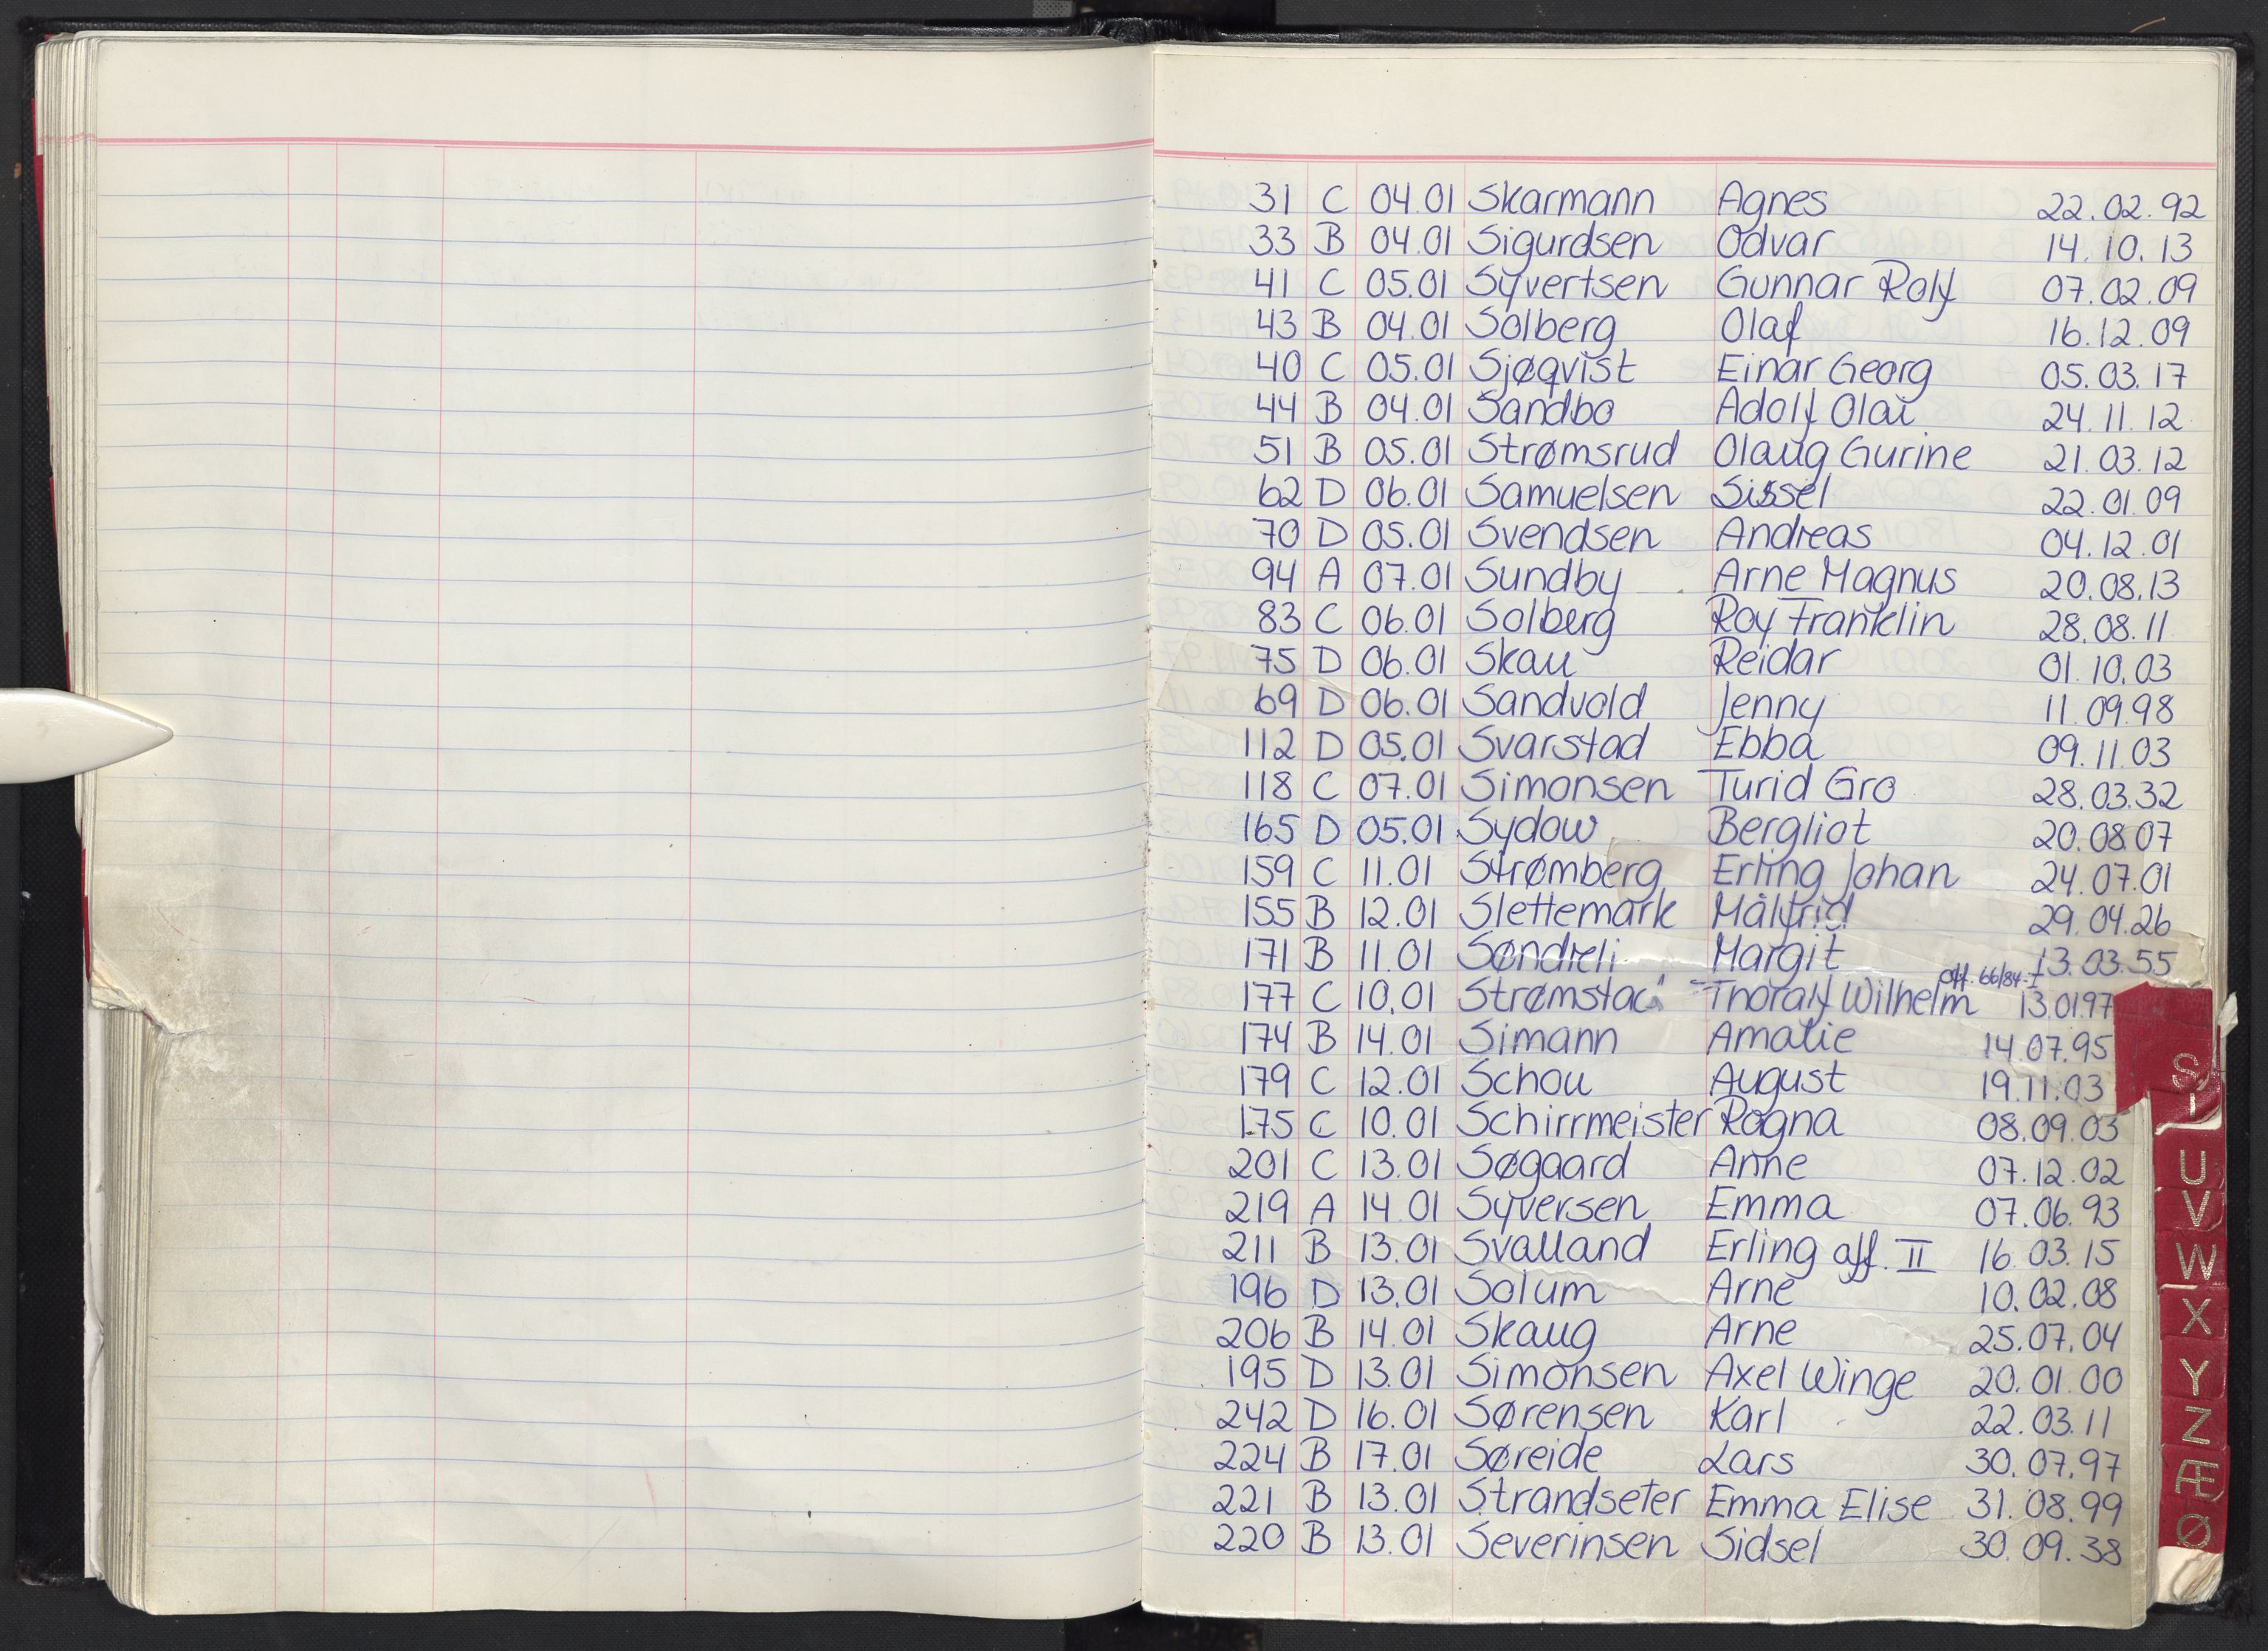 31 C 04.01 Skarmann Agnes 22.02.92
33 B 04.01 Sigurdsen Odvar 14.10.13
41 C 05.01 Syvertsen Gunnar Rolf 07.02.09
43 B 04.01 Solberg Olaf 16.12.09
40 C 05.01 Sjøqvist Einar Georg 05.03.17
44 B 04.01 Sandbo Adolf Olai 24.11.12
51 B 05.01 Strømsrud Olaug Gurine 21.03.12
62 D 06.01 Samuelsen Sissel 22.01.09
70 D 05.01 Svendsen Andreas 04.12.01
94 A 07.01 Sundby Arne Magnus 20.08.13
83 C 06.01 Solberg Roy Franklin 28.08.11
75 D 06.01 Skau Reidar 01.10.03
69 D 06.01 Sandvold Jenny 11.09.98
112 D 05.01 Svarstad Ebba 09.11.03
118 C 07.01 Simonsen Turid Gro 28.03.32
165 D 05.01 Sydow Bergliot 20.08.07
159 C 11.01 Strømberg Erling Johan 24.07.01
155 B 12.01 Slettemark Målfrid 29.04.26
171 B 11.01 Søndreli Margit 13.03.55
off. 66/84-I
177 C 10.01 Strømstad Thoralf Wilhelm 13.01.97
174 B 14.01 Simann Amalie 14.07.95
179 C 12.01 Schou August 19.11.03
175 C 10.01 Schirrmeister Ragna 08.09.03
201 C 13.01 Søgaard Anne 07.12.02
219 A 14.01 Syversen Emma 07.06.93
211 B 13.01 Svalland Erling off. II 16.03.15
196 D 13.01 Solum Arne 10.02.08
206 B 14.01 Skaug Arne 25.07.04
195 D 13.01 Simonsen Axel Winge 20.01.00
242 D 16.01 Sørensen Karl 22.03.11
224 B 17.01 Søreide Lars 30.07.97
221 B 13.01 Strandseter Emma Elise 31.08.99
220 B 13.01 Severinsen Sidsel 30.09.38
S
U
V
W
X
Y
Z
Æ
Ø